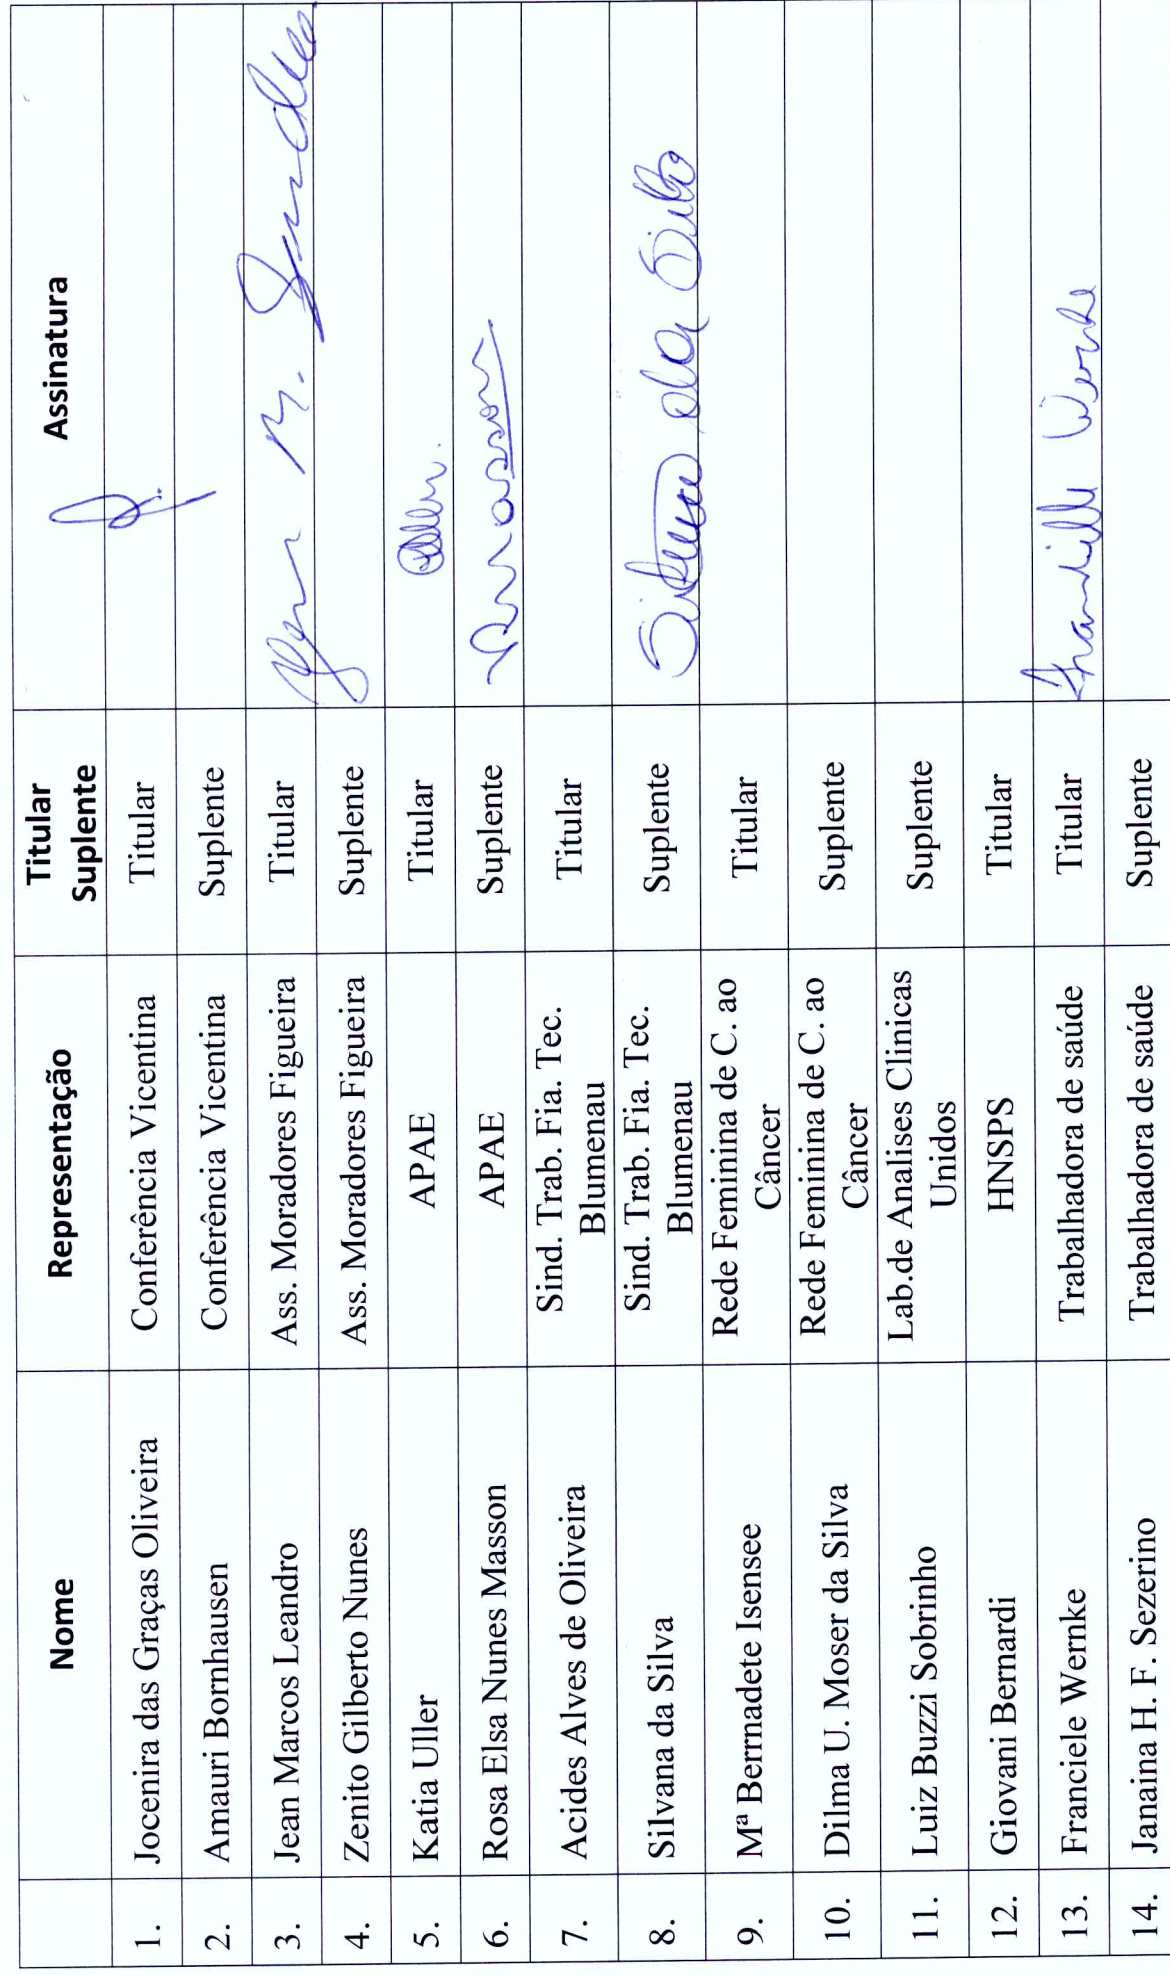 Nome Representação Titular Suplente Assinatura
1. Jocenira das Graças Oliveira Conferência Vicentina Titular
2. Amauri Bornhausen Conferência Vicentina Suplente
3. Jean Marcos Leandro Ass. Moradores Figueira Titular Jean M. Leandro
4. Zenito Gilberto Nunes Ass. Moradores Figueira Suplente
5. Katia Uller APAE Titular Uller.
6. Rosa Elsa Nunes Masson APAE Suplente Masson
7. Acides Alves de Oliveira Sind. Trab. Fia. Tec. Blumenau Titular
8. Silvana da Silva Sind. Trab. Fia. Tec. Blumenau Suplente Silvana da Silva
9. Mª Berrnadete Isensee Rede Feminina de C. ao Câncer Titular
10. Dilma U. Moser da Silva Rede Feminina de C. ao Câncer Suplente
11. Luiz Buzzi Sobrinho Lab.de Analises Clinicas Unidos Suplente
12. Giovani Bernardi HNSPS Titular
13. Franciele Wernke Trabalhadora de saúde Titular Franciele Wernke
14. Janaina H. F. Sezerino Trabalhadora de saúde Suplente